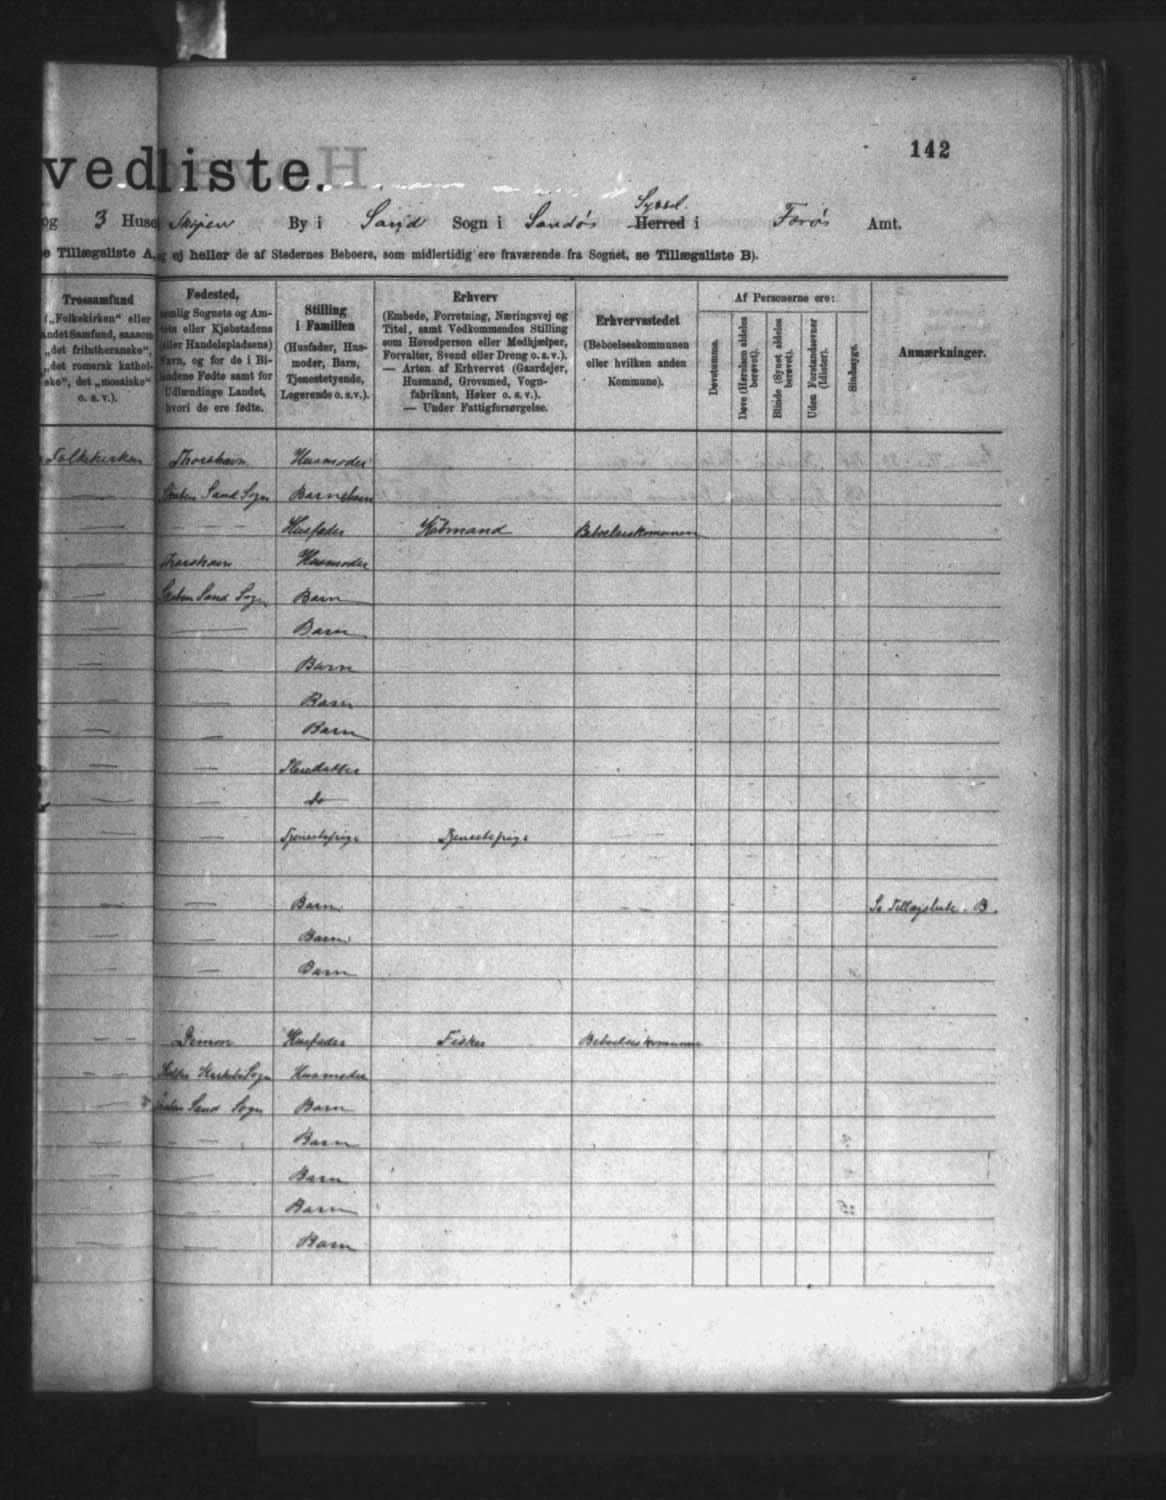 142
vedliste.
Syssel
og 3 Huse Skopen By i Sand Sogn i Sandøs Herred i Færøs Amt.
e Tillægsliste A, og ej heller de af Stedernes Beboere, som midlertidig ere fraværende fra Sognet, se Tillægsliste B).
Trossamfund
(„Folkekirken“ eller
andet Samfund, saasom
„det frilutheranske“,
„det romersk kathol-
ske“, det „mosaiske“
o. s. v.).
Fødested,
nemlig Sognets og Am-
tets eller Kjøbstadens
(eller Handelspladsens)
Navn, og for de i Bi-
landene Fødte samt for
Udlændinge Landet,
hvori de ere fødte.
Stilling
i Familien
(Husfader, Hus-
moder, Barn,
Tjenestetyende,
Logerende o. s. v.).
Erhverv
(Embede, Forretning, Næringsvej og
Titel, samt Vedkommendes Stilling
som Hovedperson eller Medhjælper,
Forvalter, Svend eller Dreng o. s. v.).
— Arten af Erhvervet (Gaardejer,
Husmand, Grovsmed, Vogn-
fabrikant, Høker o. s. v.).
— Under Fattigforsørgelse.
Erhvervsstedet
(Beboelseskommunen
eller hvilken anden
Kommune).
Af Personerne ere:
Døvstumme.
Døve (Hørelsen aldeles
berøvet).
Blinde (Synet aldeles
berøvet).
Uden Forstandsevner
(Idioter).
Sindssyge.
Anmærkninger.
Folkekirken Thorshavn Husmoder
— Sand Sogn
— — — Husfader Købmand Beboelseskomunen
— Thorshavn Husmoder
— Sand Sogn Barn
— — Barn
— — Barn
— — Barn
— — Barn
— — Plejedatter
— — do
— — Tjenestepige Tjenestepige — —
— — Barn - - Se Tillægsliste B.
— — Barn
— — Barn
— — Dimon Husfader Fisker Beboelseskomunen
— — Sogn Husmoder
— Sand Sogn Barn
— — — Barn
— — Barn
— — Barn
— — Barn